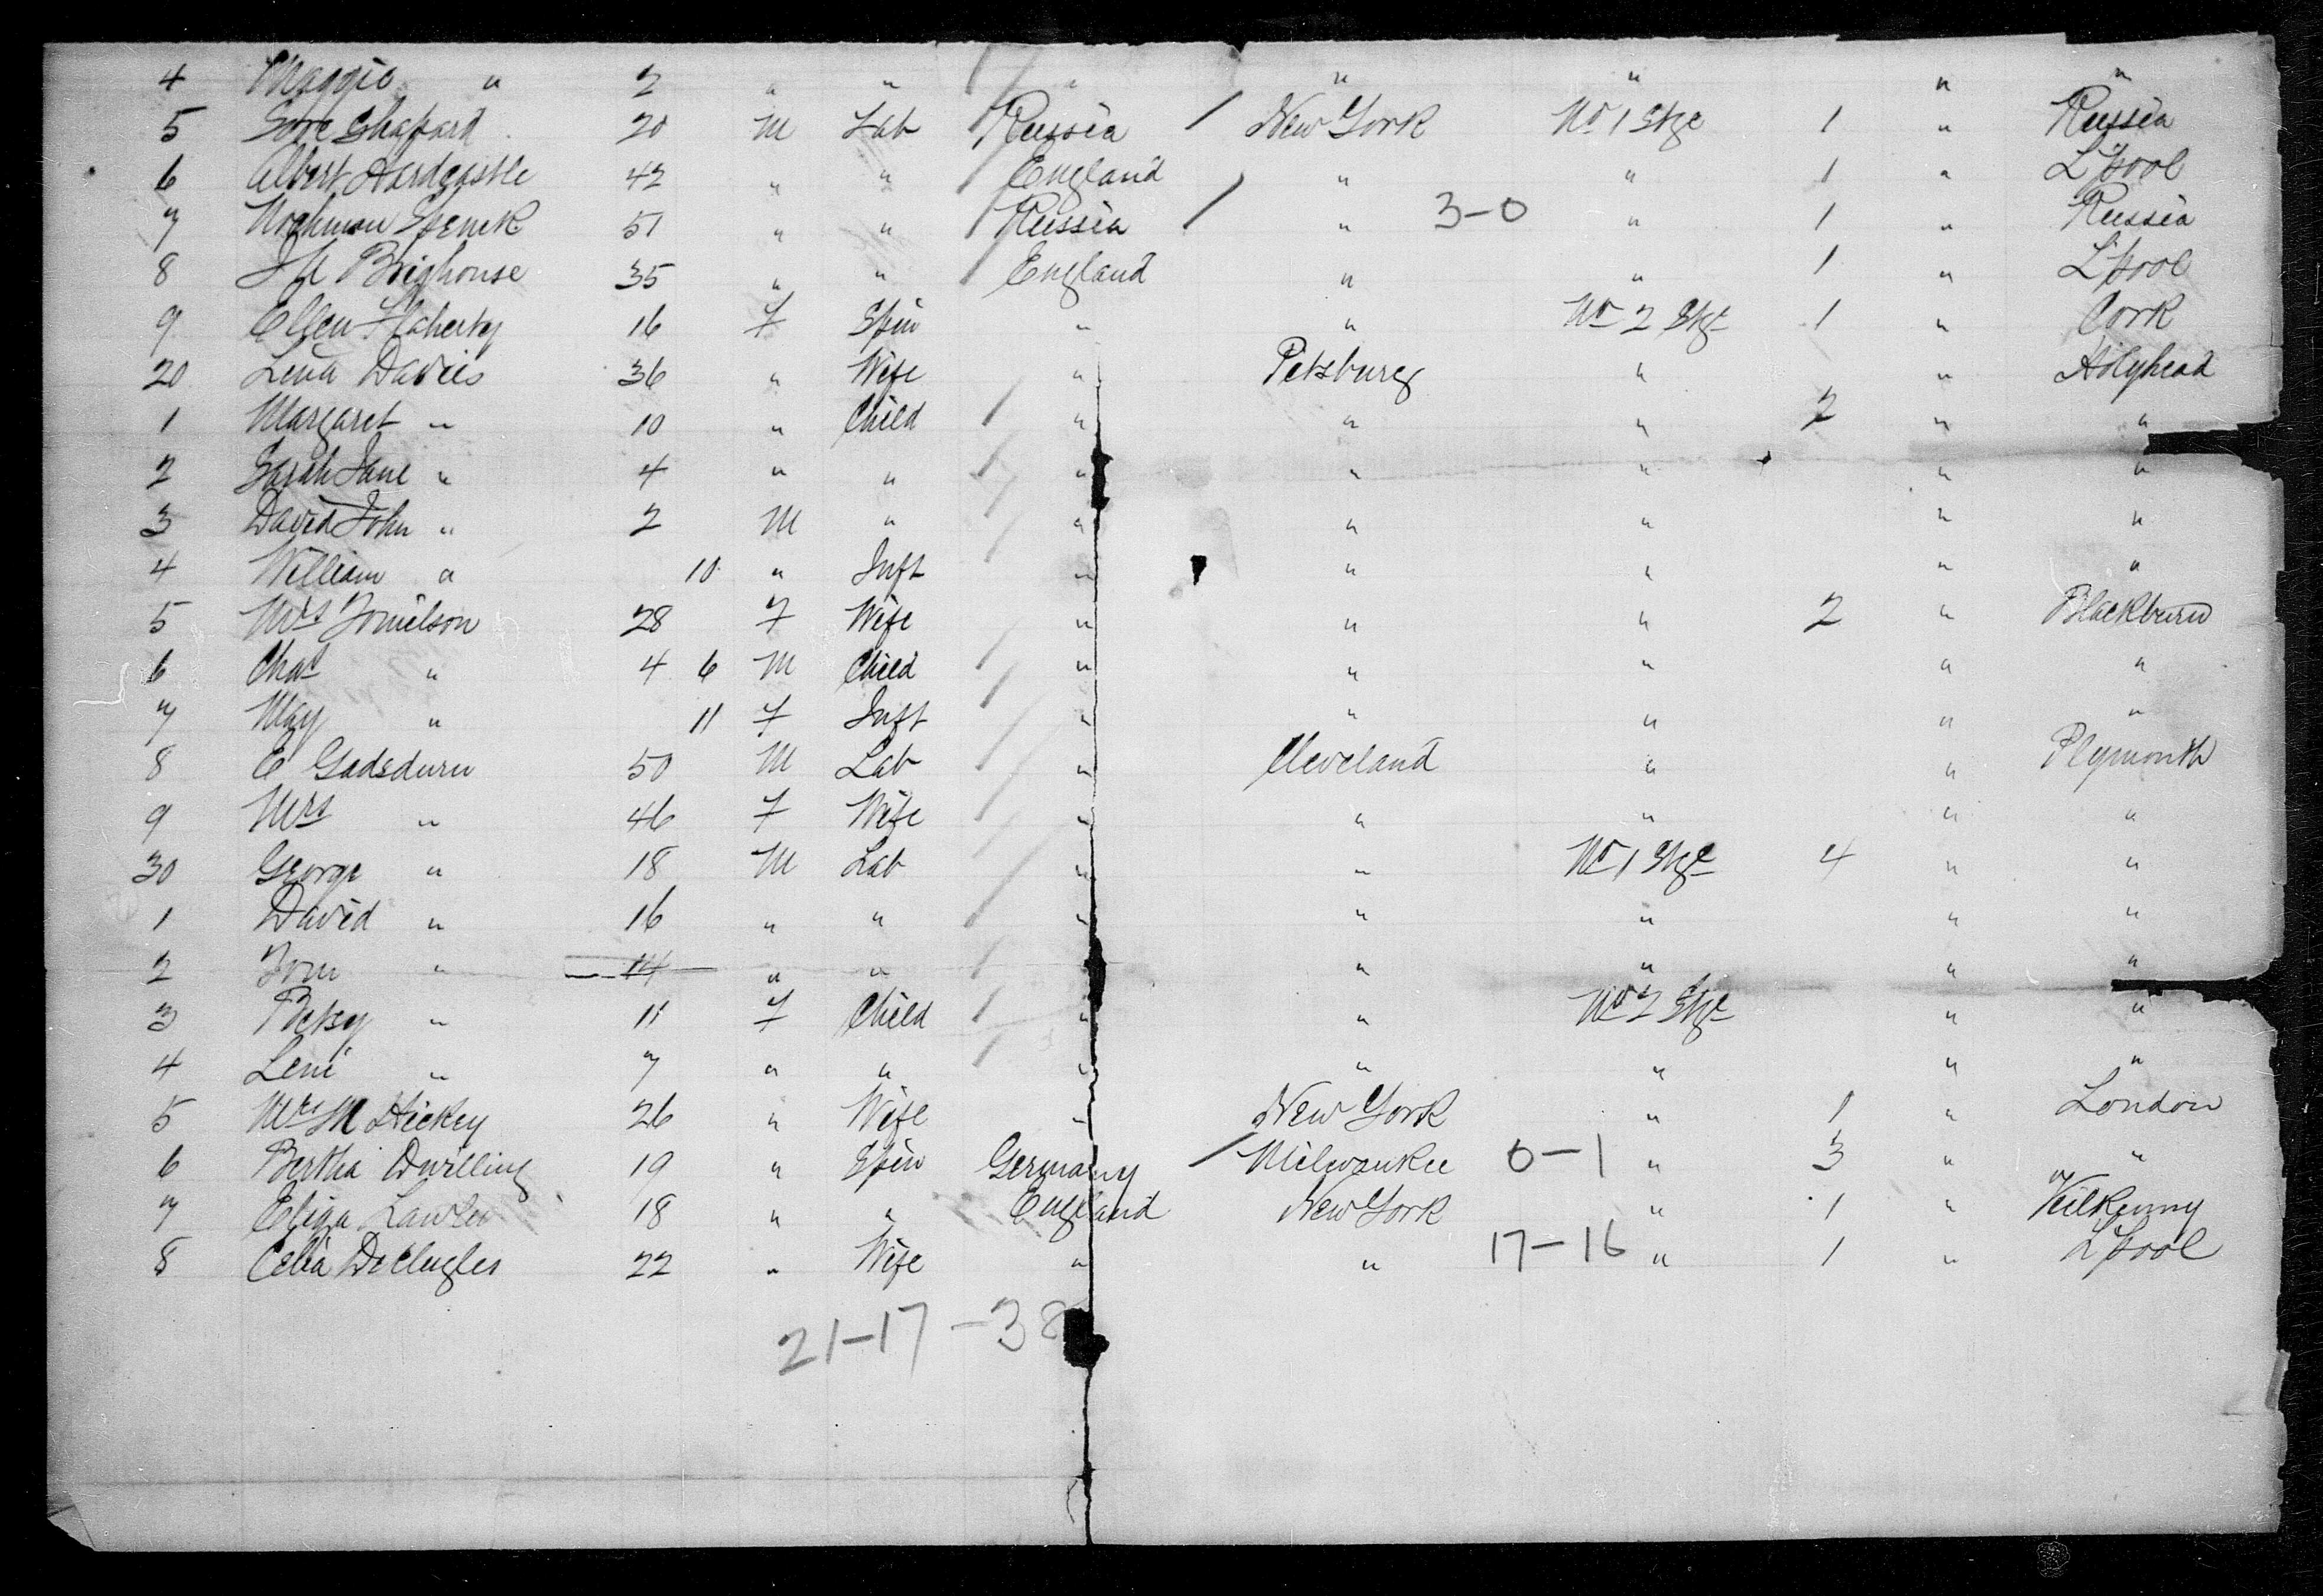 4 Maggie " 2 " " " " " " "
5 Sore Shapard 20 M Lab Russia / New York No 1 Stge 1 " Russia
6 Albert Hardcastle 42 " " England " " 1 " L'pool
7 Nochman 51 " " Russia / " 3-0 " 1 " Russia
8 Brighouse 35 " " England " " 1 " L'pool
9 Ellen Flaherty 16 F Spin " " No 2 Stge 1 " Cork
20 Lena Davies 36 " Wife " Petsburg " " Holyhead
1 Margaret " 10 " Child " " " 2 " "
2 Sarah Jane " 4 " " " " " " "
3 David John " 2 M " " " " " "
4 William " 10 " Inft " " " " "
5 Mrs Tomelson 28 F Wife " " " 2 " Blackburn
6 Chas " 4 6 M Child " " " " "
7 May " 11 F Inft " " " " "
8 E Gadsdurn 50 M Lab " Cleveland " " Plymouth
9 Mrs " 46 F Wife " " " " "
30 George " 18 M Lab " " No 1 Stge 4 " "
1 David " 16 " " " " " " "
2 Tom " 14 " " " " " "
3 Betsy " 11 F Child " " No 2 Stge " "
4 Leni " 7 " " " " " " "
5 Mrs M Hickey 26 " Wife " New York " 1 " London
6 Bertha Dwilling 19 " Spin Germany / Milwaukee 0-1 " 3 " "
7 Eliza Lawler 18 " " England New York " 1 " Kilkenny
8 Celia 22 " Wife " " 17-16 " 1 " L'pool
21-17-38